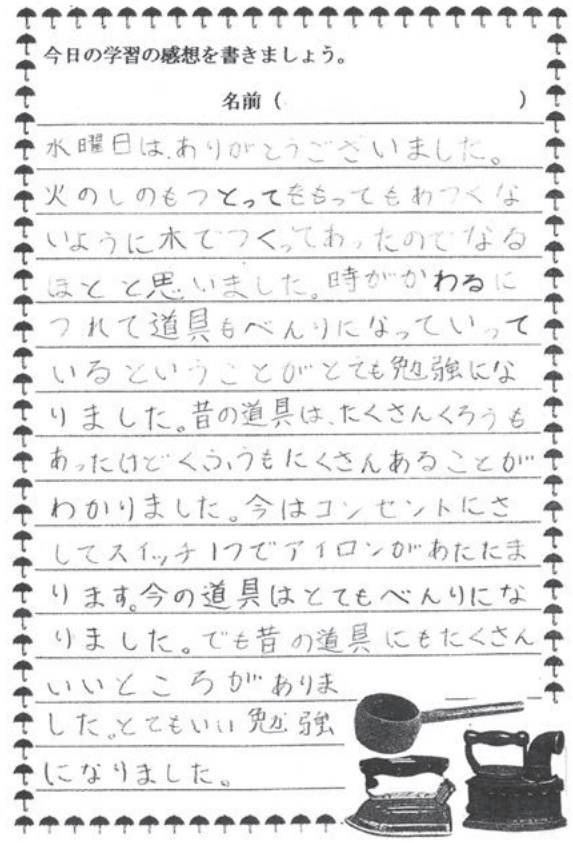 今日の学習の感想を書きましょう。
名前（　　　　）
水曜日は、ありがとうございました。
火のしのもつとってをもってもあつくな
いように木でつくってあったのでなる
ほどと思いました。時がかわるに
つれて道具もべんりになっていって
いるということがとても勉強にな
りました。昔の道具は、たくさんくろうも
あったけどくふうもたくさんあることが
わかりました。今はコンセントにさ
してスイッチ1つでアイロンがあたたま
ります。今の道具はとてもべんりにな
りました。でも昔の道具にもたくさん
いいところがありま
した。とてもいい勉強
になりました。